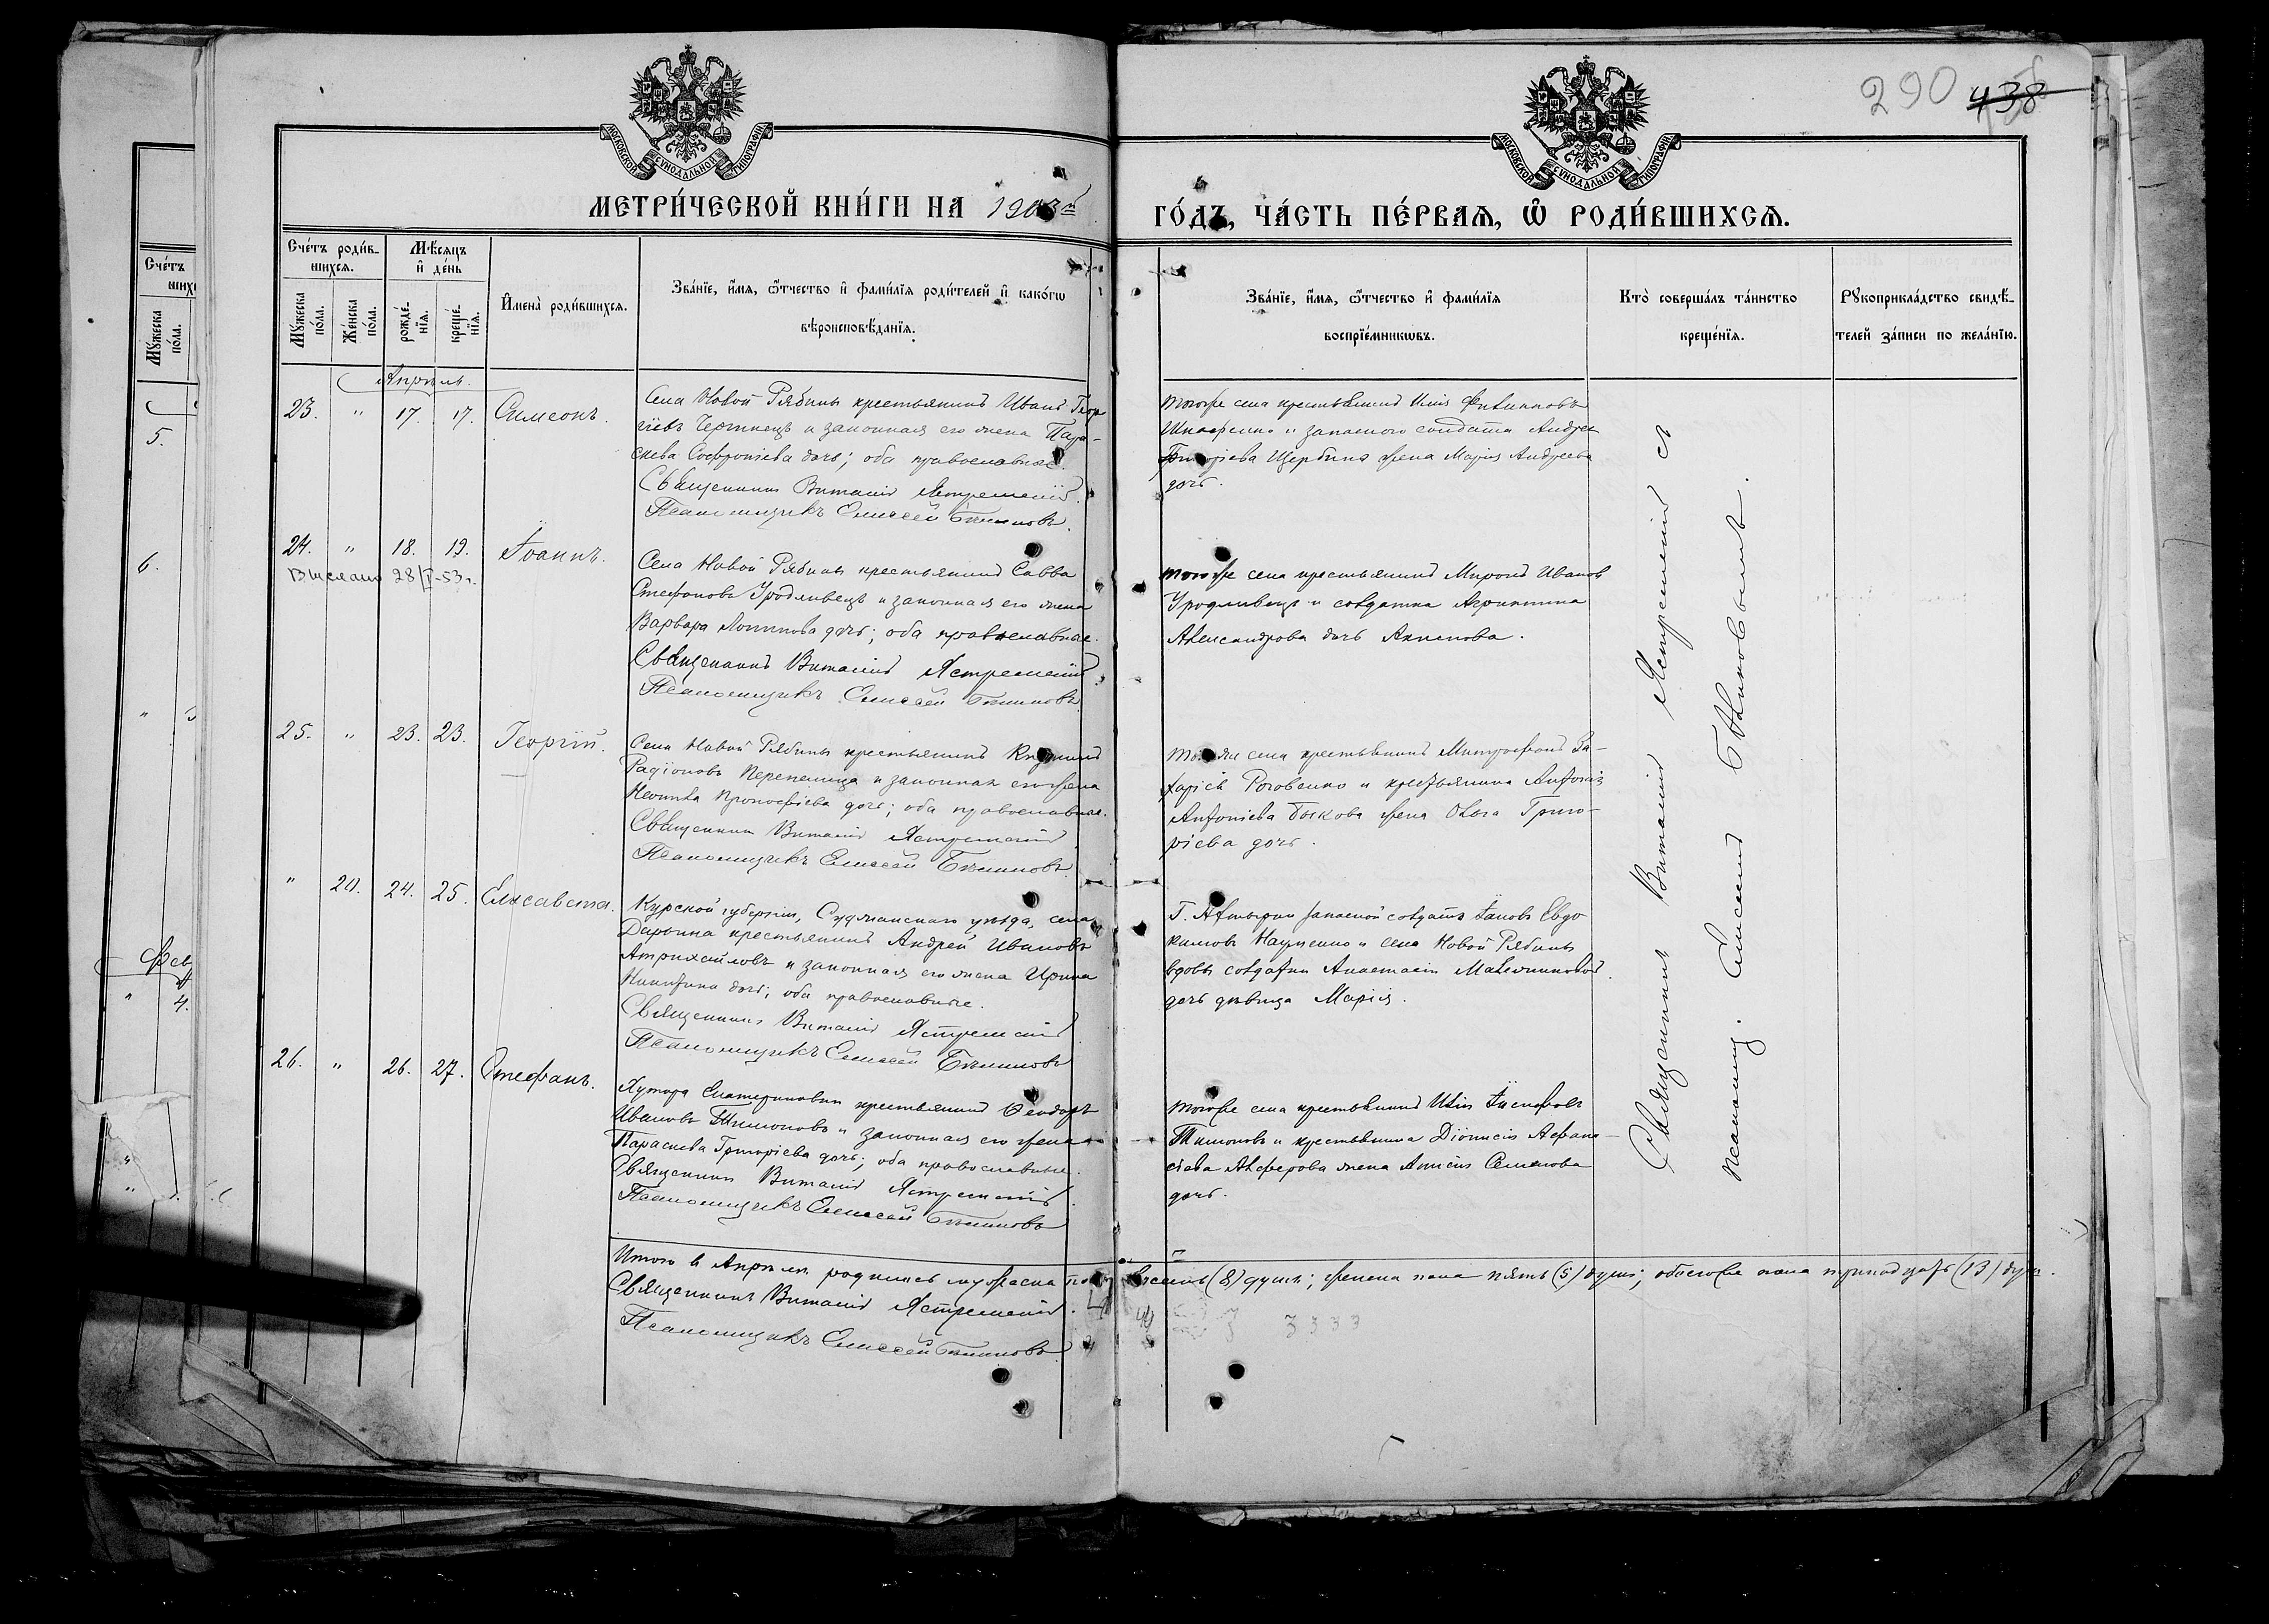 290 438
МОСКОВСКОЙ СѴНОДАЛЬНОЙ ТИПОГРАФІИ
МОСКОВСКОЙ СѴНОДАЛЬНОЙ ТИПОГРАФІИ
МЕТРИ́ЧЕСКОЙ КНИ́ГИ НА 1903й
ГО́ДЪ, ЧА́СТЬ ПЕ́РВАѦ, Ѡ҆ РОДИ́ВШИХСѦ.
Сче́тъ роди́в-
шихсѧ.
Мꙋ́жеска по́ла.
Же́нска по́ла.
Мѣ́сѧцъ и҆ де́нь
рожде́-нїѧ.
креще́-нїѧ.
И҆мена̀ роди́вшихсѧ.
Зва́нїе, и҆́мѧ, ѻ҆́тчество и҆ фами́лїѧ роди́телей и҆ како́гѡ
вѣроисповѣ́данїѧ.
Зва́нїе, и҆́мѧ, ѻ҆́тчество и҆ фами́лїѧ
воспрїе́мникѡвъ.
Кто̀ соверша́лъ та́инство
креще́нїѧ.
Рꙋкоприкла́дство свидѣ́-
телей за́писи по жела́нїю.
Апрѣль.
23. " 17. 17. Симеонъ.
Села Новой Рябины крестьянинъ Иванъ Геор
гіевъ Чертнецъ и законная его жена Пара-
скева Софроніева дочь; оба православные.
Священникъ Виталій Ястремскій.
Псаломщикъ Елисей Блиновъ.
тогоже села крестьянинъ Илія Филипповъ
и запаснаго солдата Андрея
Григоріева Щербина жена Марія Андреева
дочь.
24. " 18. 19. Іоаннъ.
Выслано 28/I-53г.
Села Новой Рябины крестьянинъ Савва
Стефановъ Уродливецъ и законная его жена
Варвара дочь; оба православные.
Священникъ Виталій Ястремскій.
Псаломщикъ Елисей Блиновъ.
тогоже села крестьянинъ Миронъ Ивановъ
Уродливецъ и солдатка Агриппина
Александрова дочь
25. " 23. 23. Георгій.
Села Новой Рябины крестьянинъ
Радіоновъ Перепелица и законная его жена
Прокофіева дочь; оба православные.
Священникъ Виталій Ястремскій
Псаломщикъ Елисей Блиновъ.
тогоже села крестьянинъ Митрофанъ За-
харіевъ Роговенко и крестьянина Антонія
Антоніева Быкова жена Ольга Григо-
ріева дочь.
" 20. 24. 25. Елисавета.
Курской губерніи, Суджанскаго уѣзда, села
Дарьина крестьянинъ Андрей Ивановъ
и законная его жена Ирина
Никитина дочь; оба православные.
Священникъ Виталій Ястремскій
Псаломщикъ Елисей Блиновъ
Г. Ахтырки запасной солдатъ Іаковъ Евдо
кимовъ Науменко и села Новой Рябины
вдовы солдатки Анастасіи
дочь дѣвица Марія.
26. " 26. 27. Стефанъ.
Хутора Екатериновки крестьянинъ Ѳеодоръ
Ивановъ Тимоновъ и законная его жена
Параскева Григоріева дочь; оба православные.
Священникъ Виталій Ястремскій
Псаломщикъ Елисей Блиновъ
тогоже села крестьянинъ Илія
Тимоновъ и крестьянина Діонисія Афана-
сіева Алферова жена Анисія Семенова
дочь.
Священникъ Виталій Ястремскій съ
псаломщ. Елисеемъ Блиновымъ.
Итого въ Апрѣлѣ родилось мужеска пола восемь (8) душъ; женска пола пять (5) душъ; обоего пола тринадцать (13) душ.
Священникъ Виталій Ястремскій.
Псаломщикъ Елисей Блиновъ
3333
Сче́тъ
Мꙋ́жеска по́ла.
5.
6.
Фев
4.